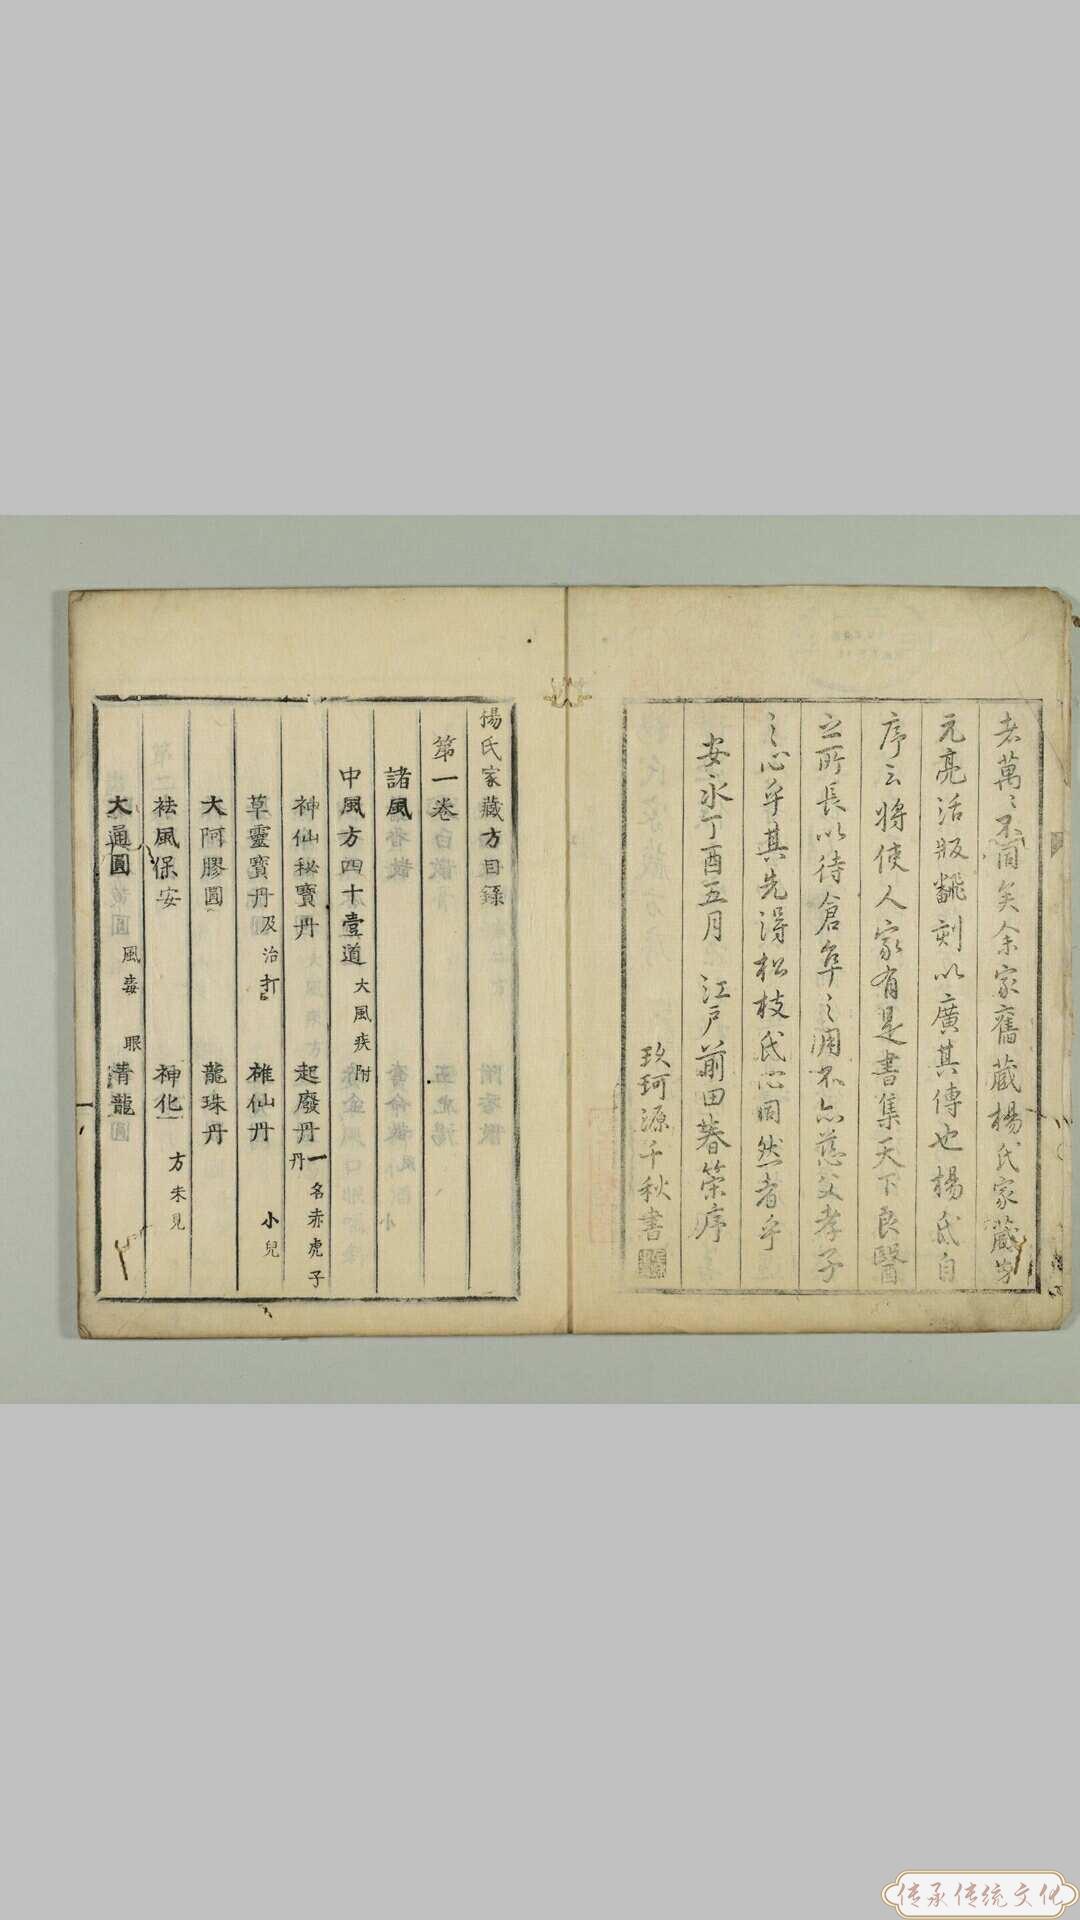 者萬〻不同矣余家舊蔵楊氏家蔵方
元亮活版飜刻以廣其傳也楊氏自
序云將使人家有是書集天下良醫
之所長以待倉卒之用不亦慈父孝子
之心乎其先得松枝氏心同然者乎
安永丁酉五月 江戸前田菶榮序
玖珂源千秋書
楊氏家藏方目録
第一卷
諸風
中風方四十壹道 大風疾附
神仙秘寶丹 起廢丹 一名赤虎子丹
草靈寶丹 及治打 椎仙丹 小兒
大阿膠圓 龍珠丹
祛風保安 神化 方未見
大通圓 風毒眼 青龍圓
传承传统文化